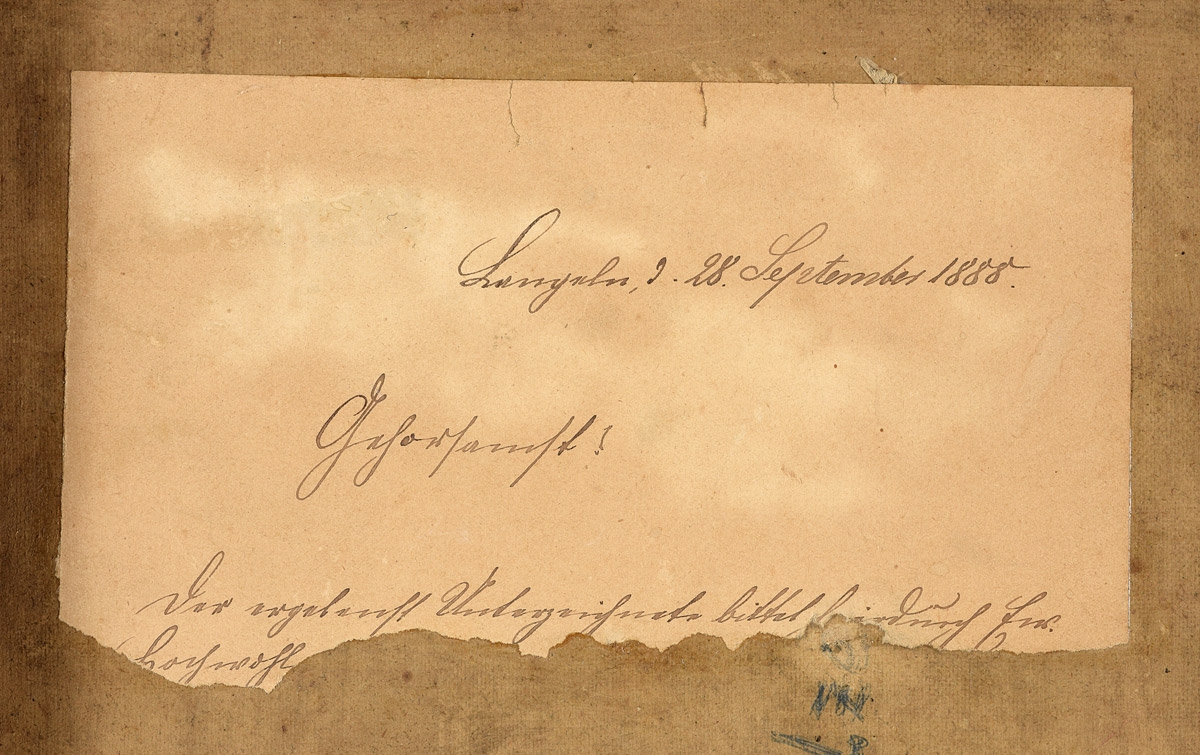 Langeln, d. 28. September 1888.
Gehorsamst!
Der ergebenst Unterzeichnete bittet hierdurch Ew.
Hochwohl